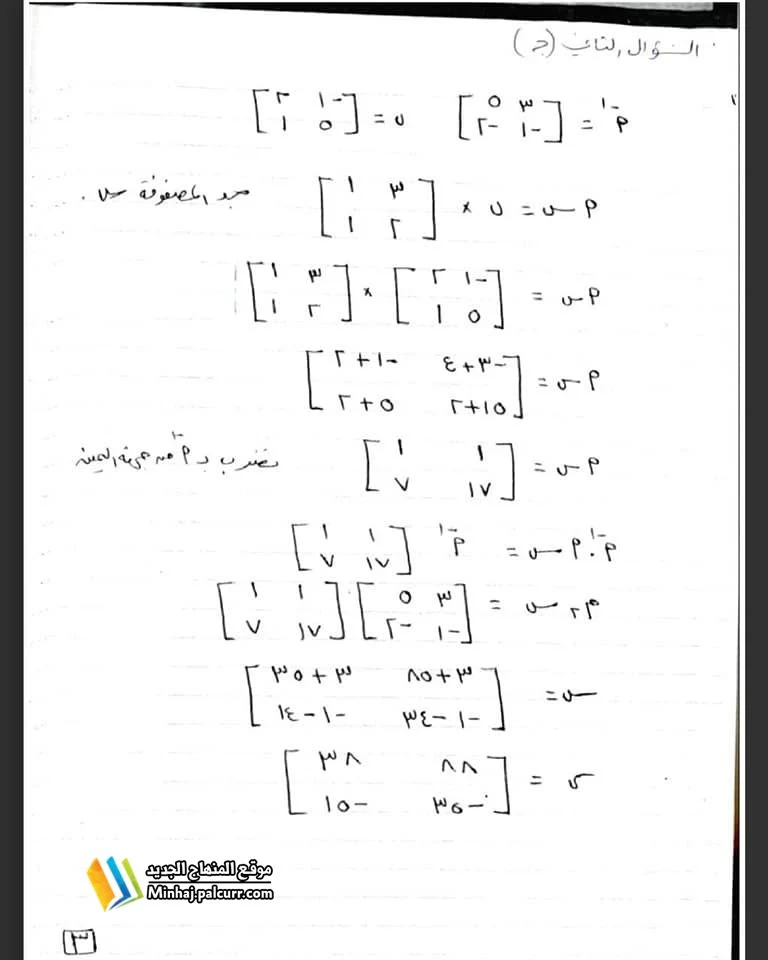 السؤال الثاني (ج)
م⁻¹ = [٣ ٥ ; -١ -٢] ن = [-١ ٢ ; ٥ ١]
م س = ن × [٣ ١ ; ٢ ١] جد المصفوفة س .
م س = [-١ ٢ ; ٥ ١] × [٣ ١ ; ٢ ١]
م س = [-٣+٤ -١+٢ ; ١٥+٢ ٥+٢]
م س = [١ ١ ; ١٧ ٧] نضرب بـ م⁻¹ من جهة اليمين
م⁻¹ . م س = م⁻¹ [١ ١ ; ١٧ ٧]
م٢ س = [٣ ٥ ; -١ -٢] [١ ١ ; ١٧ ٧]
س = [٣+٨٥ ٣+٣٥ ; -١-٣٤ -١-١٤]
س = [٨٨ ٣٨ ; -٣٥ -١٥]
موقع المنهاج الجديد
Minhaj.palcurr.com
٣